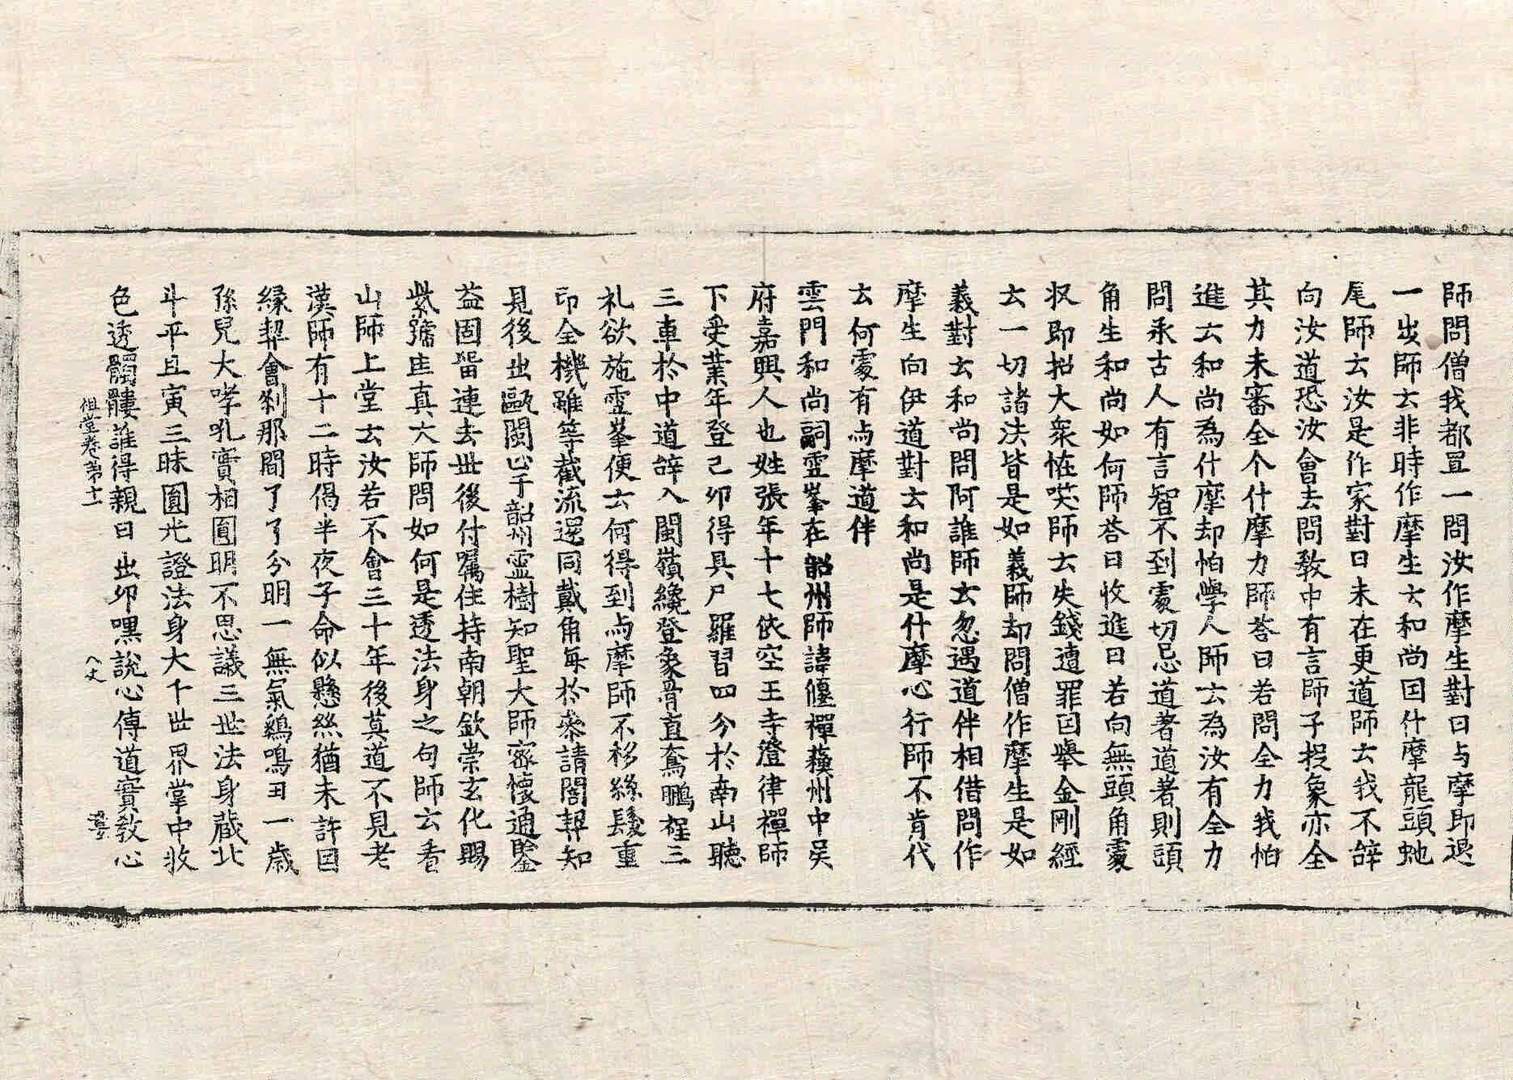 師問僧我都置一問汝作摩生對曰与摩即退
一步師云非時作摩生云和尚因什摩龍頭虵
尾師云汝是作家對曰未在更道師云我不辝
向汝道恐汝會去問教中有言師子捉象亦全
其力未審全个什摩力師荅曰若問全力我怕
進云和尚為什摩却怕學人師云為汝有全力
問承古人有言智不到處切忌道著道著則頭
角生和尚如何師荅曰收進曰若向無頭角處
収即招大衆恠唉師云失錢遭罪因舉金剛經
云一切諸法皆是如義師却問僧作摩生是如
義對云和尚問阿誰師云忽遇道伴相借問作
摩生向伊道對云和尚是什摩心行師不肯代
云何處有与摩道伴
雲門和尚嗣雪峯在韶州師諱偃禪蘇州中吳
府嘉興人也姓張年十七依空王寺澄律禪師
下受業年登己卯得具尸羅習四分於南山聽
三車於中道辝入閩嶺纔登象骨直奮鵬程三
礼欲施雪峯便云何得到与摩師不移絲髮重
印全機雖等截流還同戴角每於叅請閤契知
見後出甌閩止于韶州靈樹知聖大師密懷通鑒
益固留連去世後付囑住持南朝欽崇玄化賜
紫號匡真大師問如何是透法身之句師云看
山師上堂云汝若不會三十年後莫道不見老
漢師有十二時偈半夜子命似懸絲猶未許因
緣契會刹那間了了分明一無氣鷄鳴丑一歳
孫兒大哮吼實相圓明不思議三世法身藏北
斗平旦寅三昧圓光證法身大千世界掌中收
色透髑髏誰得親日出卯嘿說心傳道實教心
祖堂卷第十一
八丈